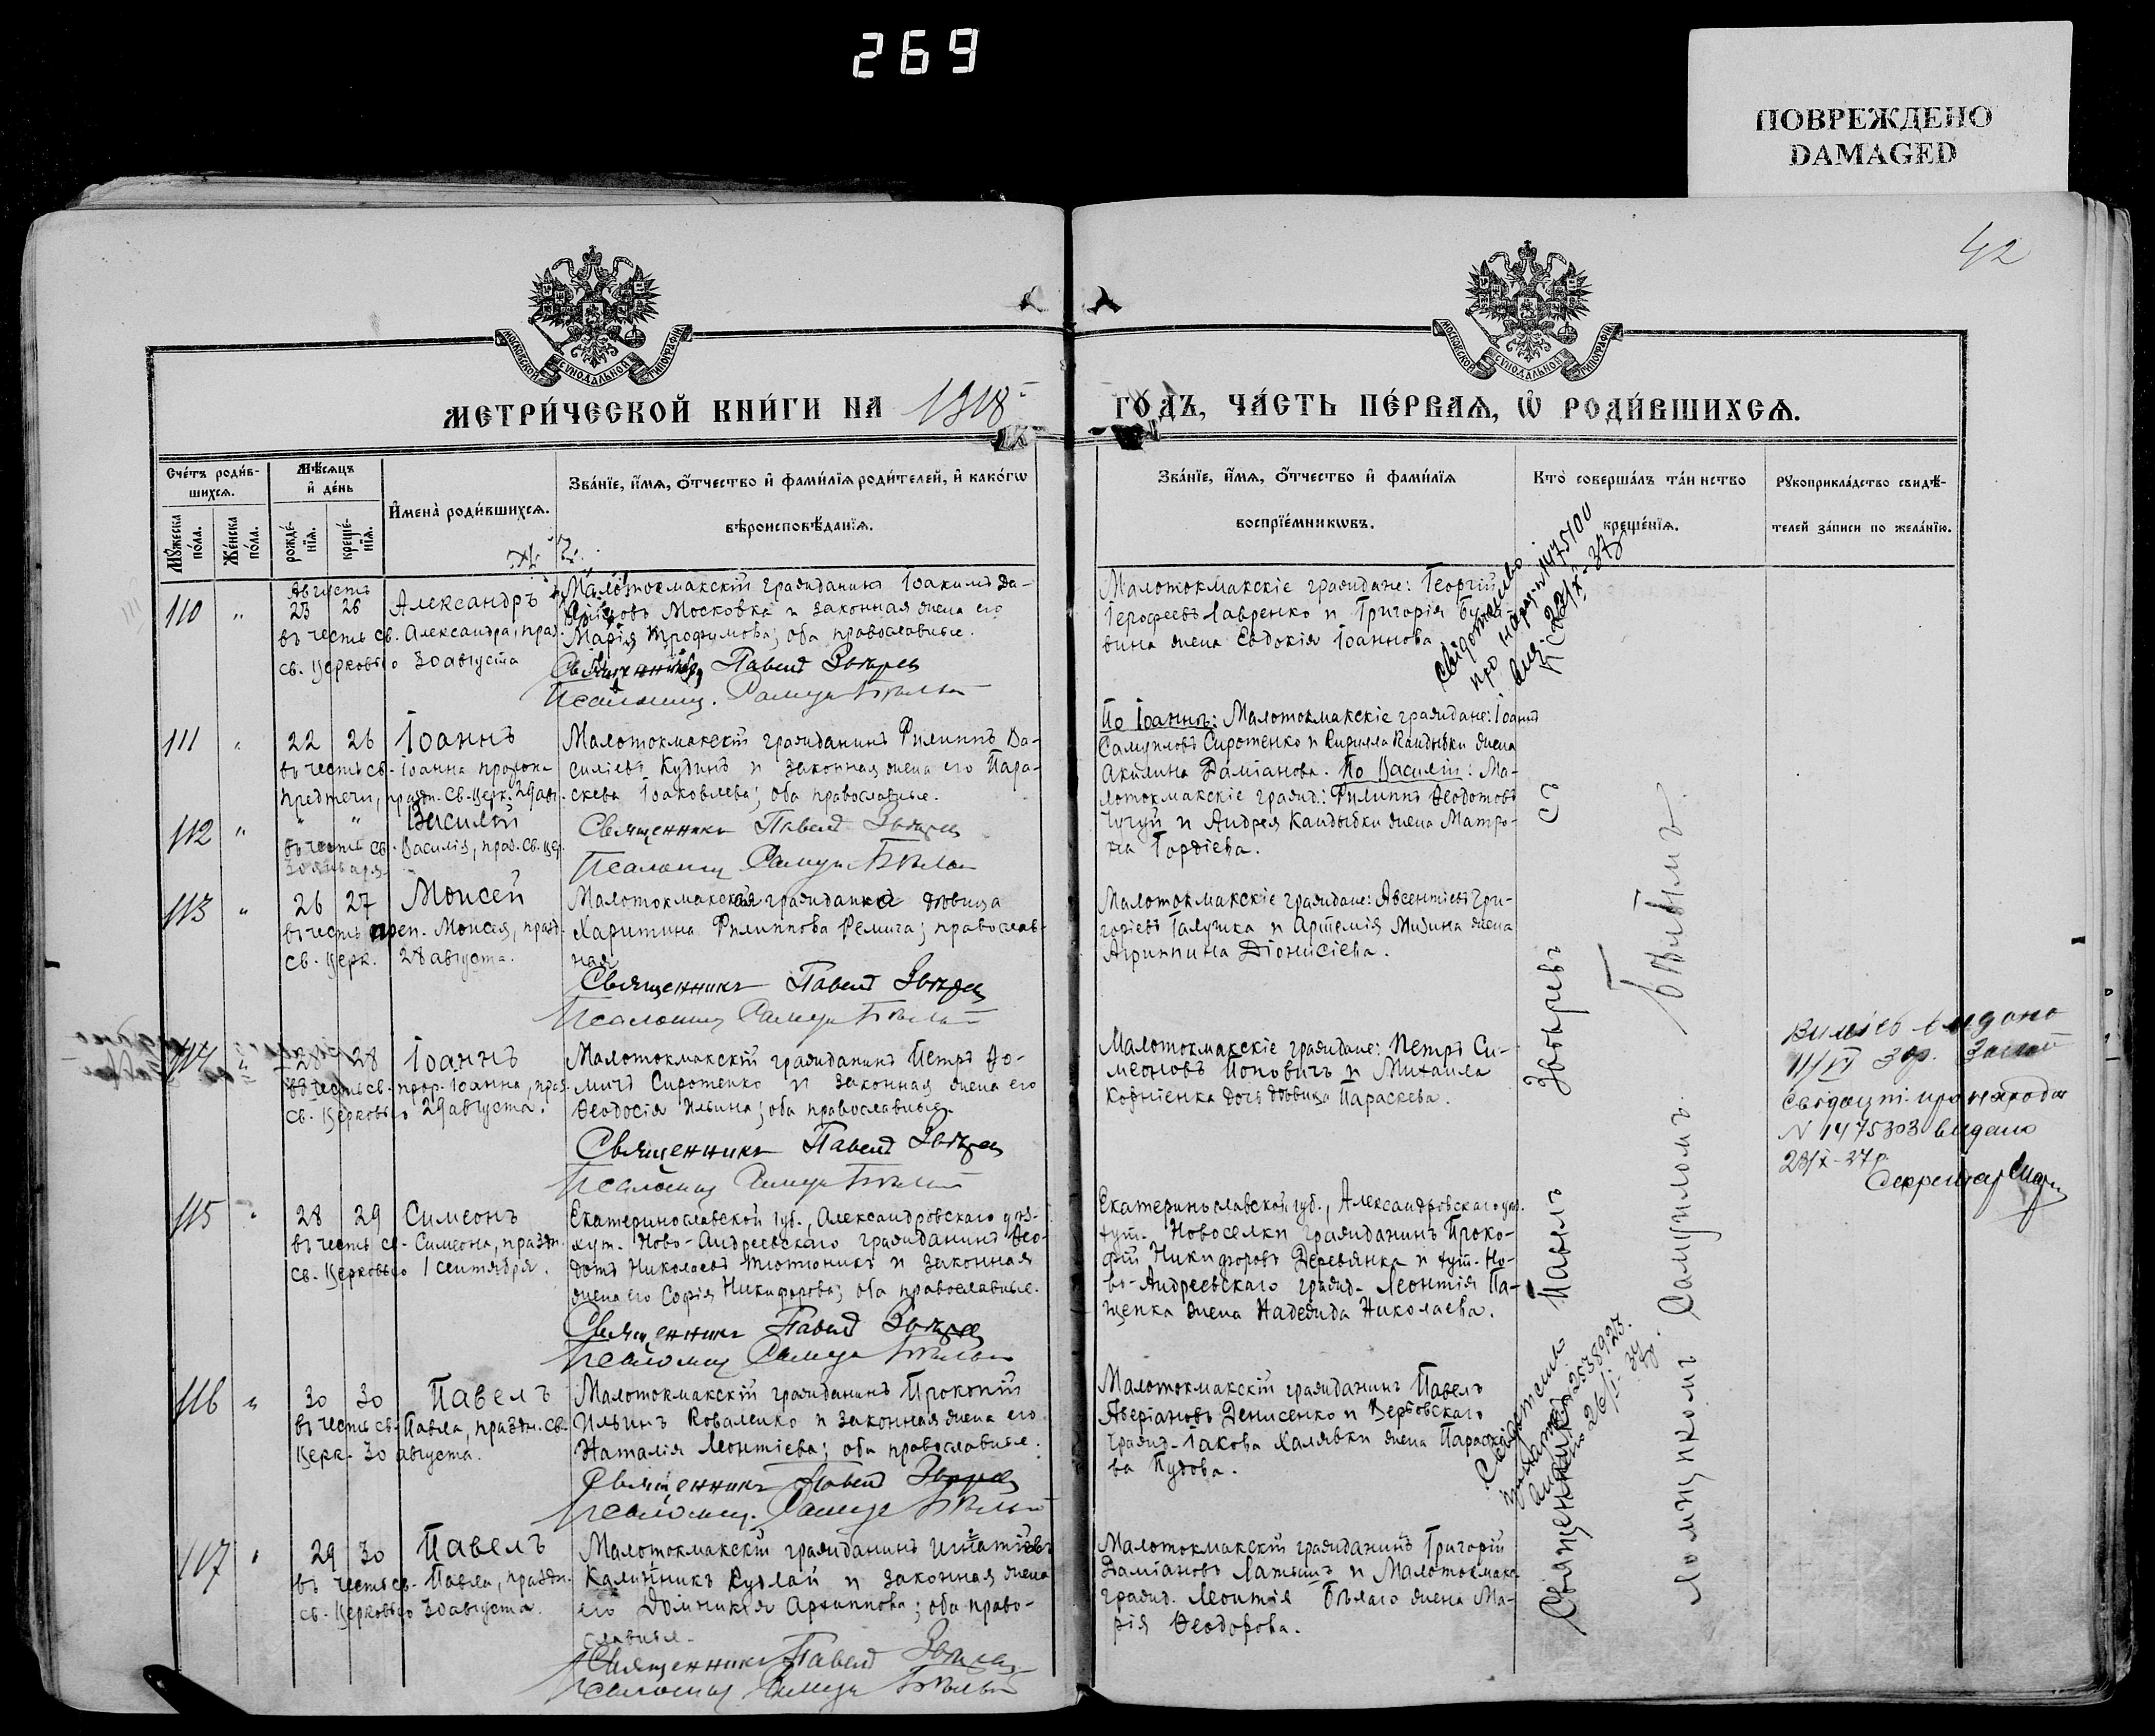 269
ПОВРЕЖДЕНО
DAMAGED
42
МОСКОВСКОЙ СУНОДАЛЬНОЙ ТИПОГРАФІИ
МОСКОВСКОЙ СУНОДАЛЬНОЙ ТИПОГРАФІИ
МЕТРИ́ЧЕСКОЙ КНИ́ГИ НА 1918
ГОДЪ, ЧА́СТЬ ПЕ́РВАѦ, Ѡ҆ РОДИ́ВШИХСѦ.
Счéтъ роди́в-
шихсѧ.
Мꙋ́жеска по́ла.
Же́нска по́ла.
Мѣ́сѧцъ
и҆ де́нь
рожде́-
нїѧ.
креще́-
нїѧ.
И҆мена̀ роди́вшихсѧ.
Зва́нїе, и҆́мѧ, ѻ҆́тчество и҆ фами́лїѧ роди́телей, и҆ како́гѡ
вѣроисповѣ́данїѧ.
Зва́нїе, и҆́мѧ, ѻ҆́тчество и҆ фами́лїѧ
воспрїе́мникѡвъ.
Кто̀ соверша́лъ та́инство
креще́нїѧ.
Рꙋкоприкла́дство свидѣ́-
телей за́писи по жела́нїю.
Августъ
110 " 23 26 Александръ
въ честь св. Александра, праз.
св. Церковью 30 августа
Малотокмакскій гражданинъ Іоакимъ Да-
Московка и законная жена его
Марія Трофимова; оба православные.
Священникъ Павелъ Звѣревъ
Псаломщ. Самуил Бѣлый
Малотокмакскіе граждане: Георгій
Іерофеевъ Лавренко и Григорія
вина жена Евдокія Іоаннова
Свідоцтво
про народж. 1475100
вид. 22/X-37р
111 " 22 26 Іоаннъ
въ честь св. Іоанна пророка
предтечи, праздн. св. Церк. 29 авг.
Малотокмакскій гражданинъ Филиппъ Ва-
силіевъ Кудинъ и законная жена его Пара-
скева Іаковлева; оба православные.
112 " " " Василій
въ честь св. Василія, праз. св. цер.
30 января.
Священникъ Павелъ Звѣревъ
Псаломщ Самуил Бѣлый
По Іоаннѣ: Малотокмакскіе граждане: Іоаннъ
Самуиловъ Сиротенко и Кирилла Кандыбки жена
Акилина Даміанова. По Василіи: Ма-
лотокмакскіе гражд.: Филиппъ Ѳеодотовъ
Чугуй и Андрея Кандыбки жена Матро-
на Гордіева.
113 " 26 27 Моисей
въ честь преп. Моисея, празд.
св. Церк. 28 августа.
Малотокмакская гражданка дѣвица
Харитина Филиппова Ремига; православ-
ная
Священникъ Павелъ Звѣревъ
Псаломщ Самуил Бѣлый
Малотокмакскіе граждане: Авсентіевъ Гри-
горіевъ Галушка и Артемія Мизина жена
Агриппина Діонисіева.
114 28 28 Іоаннъ
въ честь св. прор. Іоанна, праз.
св. Церковью 29 августа.
Малотокмакскій гражданинъ Петръ Ѳо-
мичъ Сиротенко и законная жена его
Ѳеодосія Ильина; оба православные.
Священникъ Павелъ Звѣревъ
Псаломщ Самуил Бѣлый
Малотокмакскіе граждане: Петръ Си-
меоновъ Поповичъ и Михаила
Корніенка дочь дѣвица Параскева.
видано
11/VI 3 р.
про народж
N 1475303 видано
23/X-37р.
Секретар
115 " 28 29 Симеонъ
въ честь св. Симеона, праздн.
св. Церковью 1 сентября.
Екатеринославской губ., Александровскаго уѣз.
хут. Ново-Андреевскаго гражданинъ Ѳео-
дотъ Николаевъ Тютюникъ и законная
жена его Софія Никифорова; оба православные.
Священникъ Павелъ Звѣревъ
Псаломщ Самуил Бѣлый
Екатеринославской губ., Александровскаго уѣз.
хут. Новоселки гражданинъ Проко-
фій Никифоровъ Деревянка и хут. Но-
во-Андреевскаго гражд. Леонтія Па-
щенка жена Надежда Николаева.
116 " 30 30 Павелъ
въ честь св. Павла, праздн. св.
Церк. 30 августа.
Малотокмакскій гражданинъ Прокопій
Ильинъ Коваленко и законная жена его
Наталія Леонтіева; оба православные.
Священникъ Павелъ Звѣревъ
Псаломщ. Самуил Бѣлый
Малотокмакскій гражданинъ Павелъ
Аверіановъ Денисенко и Вербовскаго
гражд. Іакова Халявки жена Параске-
ва Пудова.
117 " 29 30 Павелъ
въ честь св. Павла, праздн.
св. Церковью 30 августа.
Малотокмакскій гражданинъ Игнатіевъ
Калинникъ Кудлай и законная жена
его Домникія Архиппова; оба право-
славные.
Священникъ Павелъ Звѣревъ
Псаломщ Самуил Бѣлый
Малотокмакскій гражданинъ Григорій
Даміановъ Латышъ и Малотокмакс
гражд. Леонтія Бѣлаго жена Ма-
рія Ѳеодорова.
Священникъ Павелъ Звѣревъ съ
Псаломщикомъ Самуиломъ Бѣлымъ.